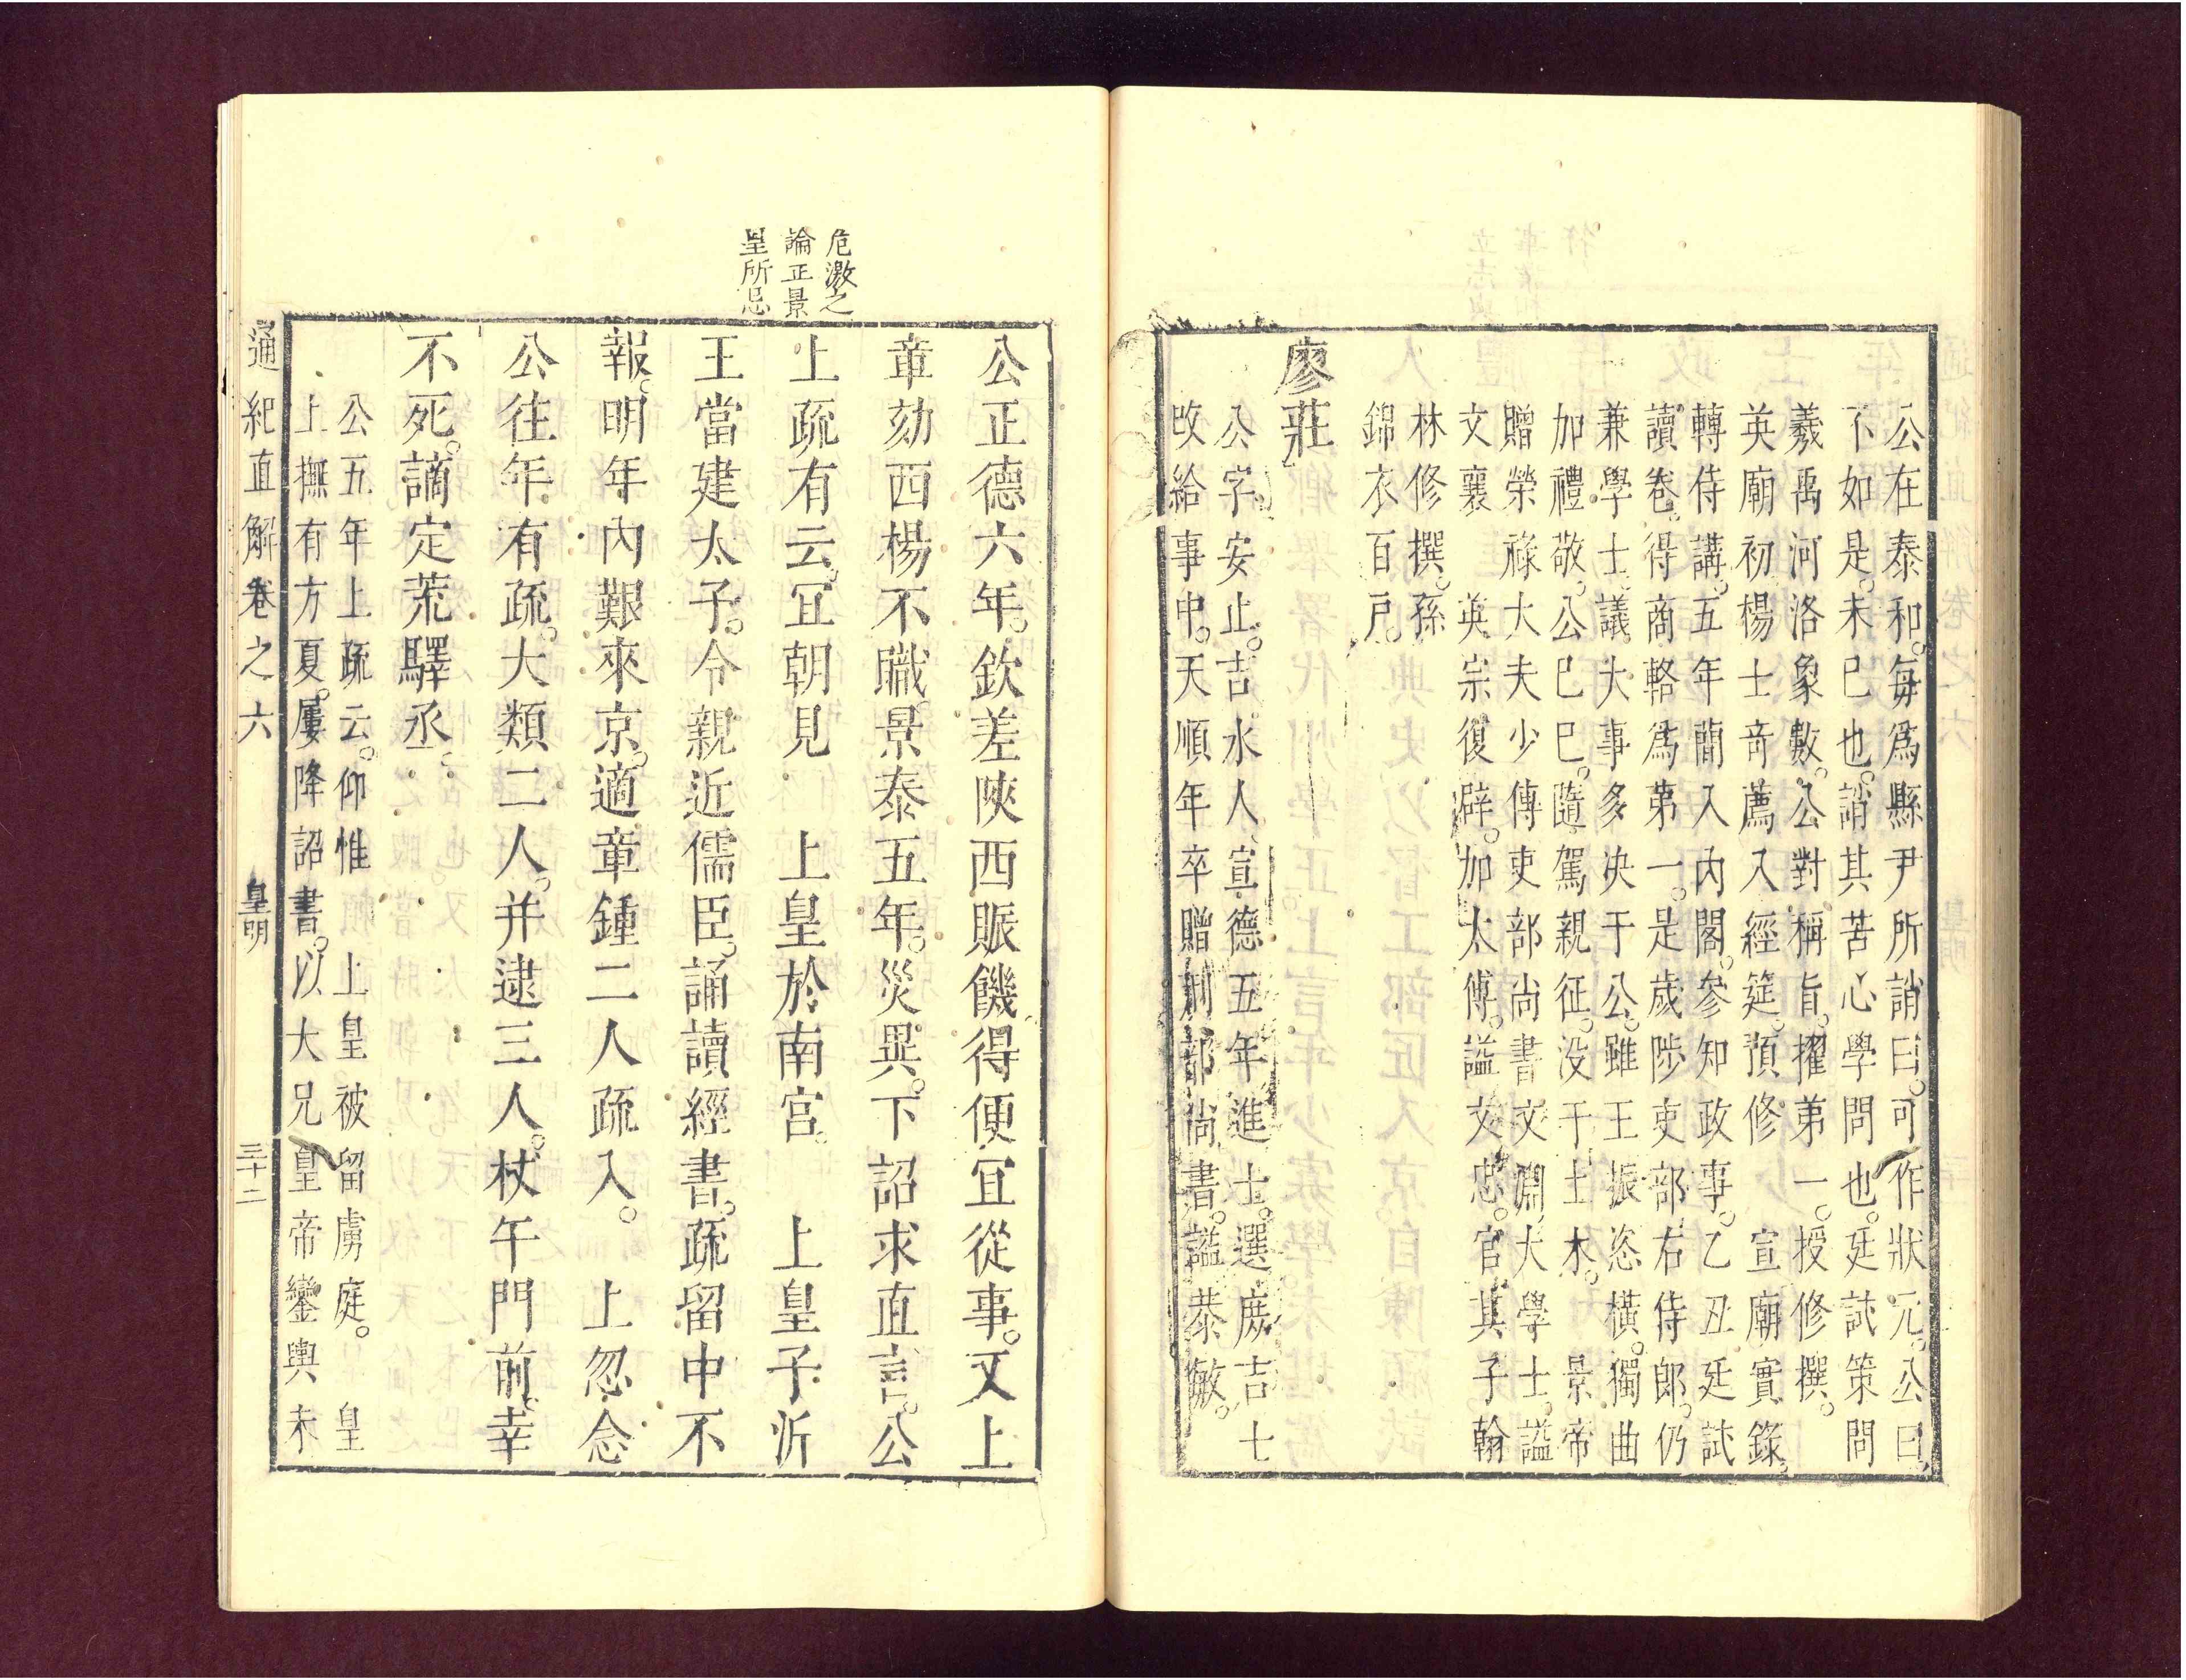 公在泰和。每爲縣尹所誚曰。可作狀元。公曰。
下如是。未已也。誚其苦心學問也。廷試策問
羲禹河洛象數。公對稱旨。擢第一。授修撰。
英廟初楊士奇薦入經筵。預修 宣廟實錄。
轉侍講。五年簡入內閣。參知政事。乙丑廷試
讀卷。得商輅爲第一。是歲陟吏部右侍郎。仍
兼學士。議大事多決于公。雖王振恣橫。獨曲
加禮敬。公已巳。隨駕親征。没于土木。 景帝
贈榮祿大夫少傅吏部尚書文淵大學士。諡
文襄 英宗復辟。加太傅。諡文忠。官其子翰
林修撰。孫
錦衣百戸。
廖莊
公字安止。吉水人宣德五年進士。選庶吉士
改給事中。天順年卒贈刑部尚書。諡恭敏。
危激之
論正景
皇所忌
公正德六年。欽差陝西賑饑得便宜從事。又上
章劾西楊不職。景泰五年。災異。下詔求直言。公
上疏有云。宜朝見 上皇於南宮。 上皇子沂
王當建太子。令親近儒臣。誦讀經書。疏留中不
報。明年內艱來京。適章鍾二人疏入。 上忽念
公往年有疏。大類二人。并逮三人。杖午門前。幸
不死。謫定荒驛丞。
公五年上疏云。仰惟 上皇被留虜庭。 皇
上撫有方夏。屢降詔書。以大兄 皇帝鑾輿未
通紀直解卷之六 皇明 三十二